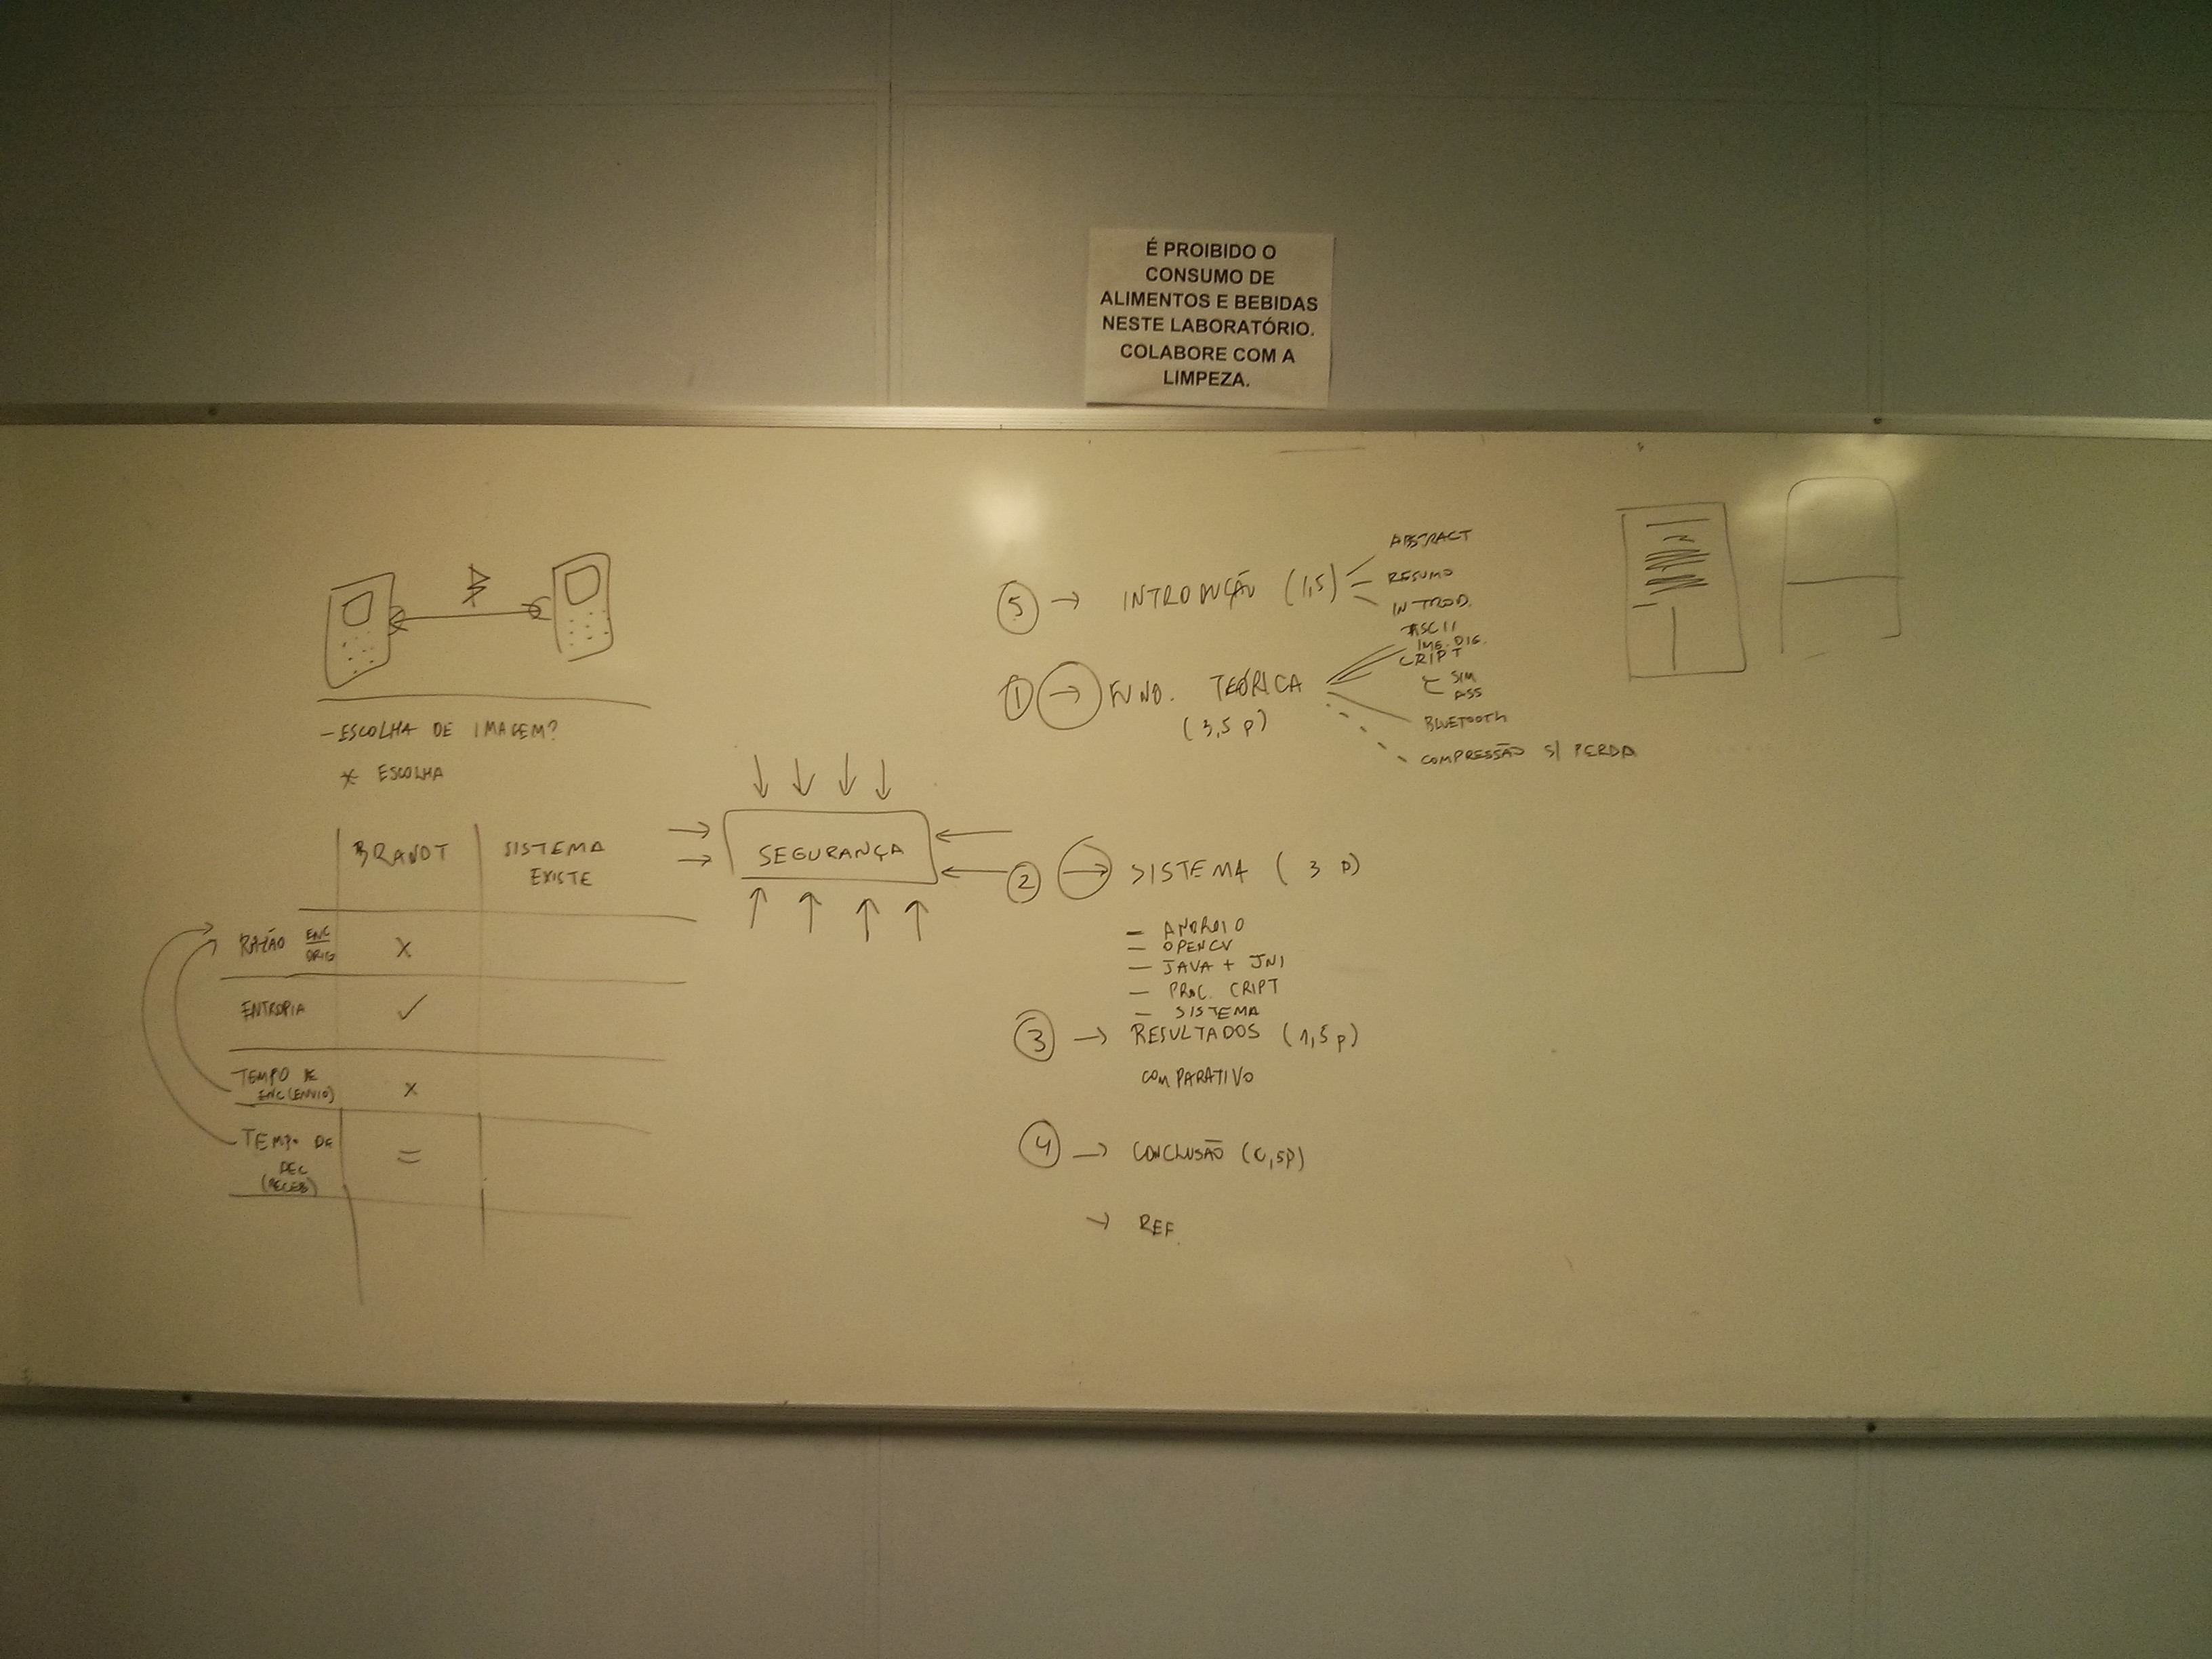 É PROIBIDO O
CONSUMO DE
ALIMENTOS E BEBIDAS
NESTE LABORATÓRIO.
COLABORE COM A
LIMPEZA.
- ESCOLHA DE IMAGEM?
* ESCOLHA
BRANDT SISTEMA
EXISTE
RAZÃO ENC
ORIG
X
ENTROPIA ✓
TEMPO DE
ENC (ENVIO) X
TEMPO DE
DEC =
(RECEB)
SEGURANÇA
5 → INTRODUÇÃO (1,5)
ABSTRACT
RESUMO
INTROD.
1 → FUND. TEÓRICA
(3,5 P)
ASCII
IMG. DIG.
CRIPT
SIM
ASS
BLUETOOTH
COMPRESSÃO S/ PERDA
2 → SISTEMA (3 P)
- ANDROID
- OPENCV
- JAVA + JNI
- PROC. CRIPT
- SISTEMA
3 → RESULTADOS (1,5 P)
COMPARATIVO
4 → CONCLUSÃO (0,5P)
→ REF.